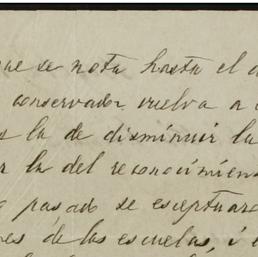 que se nota hasta el
conservador vuelva a
la de disminuir la
la del reconocimien
pasado se esceptuar
de las escuelas, i